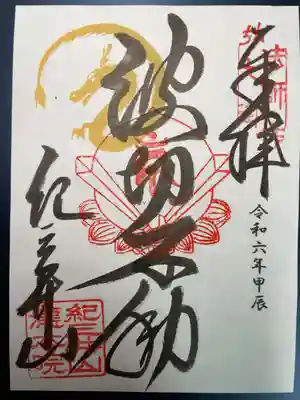 奉拝
令和六年甲辰
波切不動
紀三井山
紀三井山